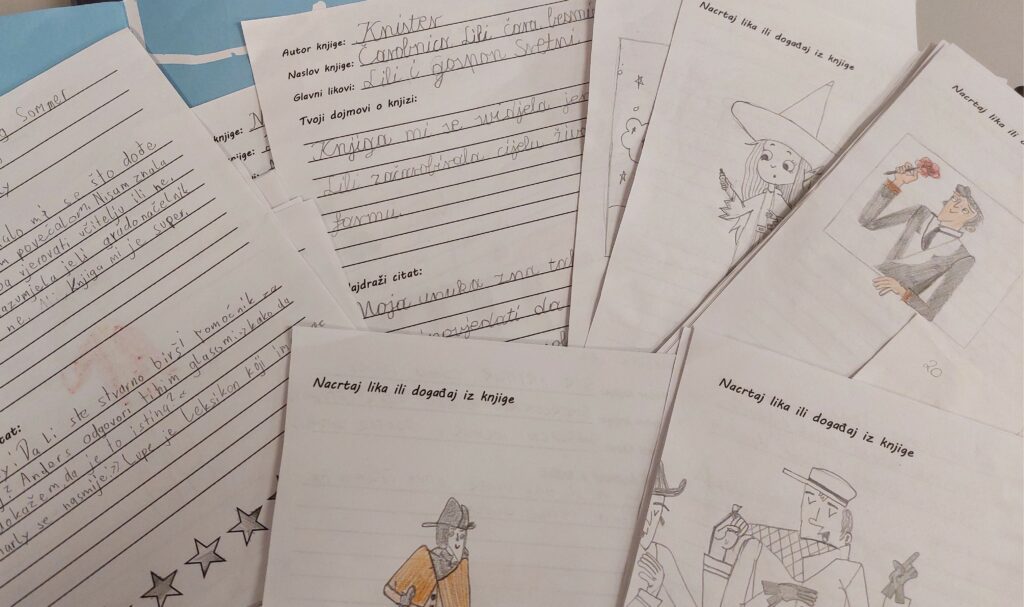 Sommer
alo mi se što dođe
povečalom. Nisam znala
vjerovati učitelju ili ne.
azumjela je li gradonačelnik
ne. Ali knjiga mi je super.
tat:
Da li ste stvarno bivši pomoćnik za
Anders odgovori tihim glasom:>>kako da
dokažem da je to istina?<<
se nasmije:>> Lopе je Leksikon koji
knjige:
njige:
Autor knjige: Knister
Naslov knjige: Čarobnica Lili čara
Glavni likovi: Lili i gospon Sretni
Tvoji dojmovi o knjizi:
Knjiga mi se svidjela jer
Lili začarobirala cijelu živ
farmu.
Najdraži citat:
Moja unuka zna
ipovjedati da
Nacrtaj lika ili događaj iz knjige
Nacrtaj lika ili
20
Nacrtaj lika ili događaj iz knjige
Nacrtaj lika ili događaj iz knjige